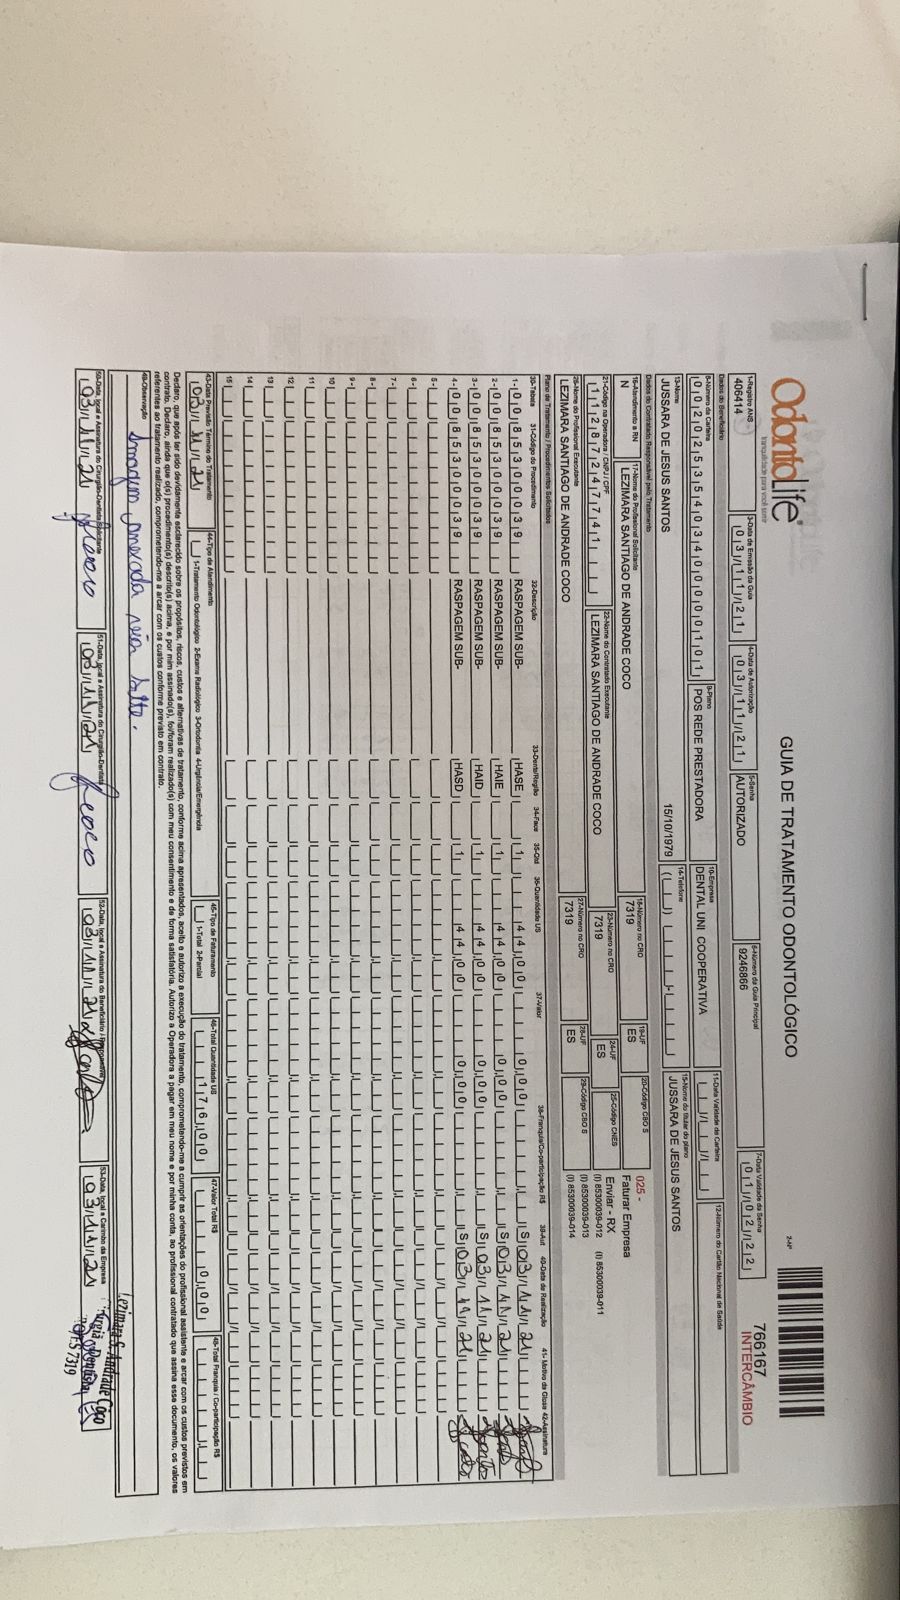 OdontoLife®
tranquilidade para você sorrir
GUIA DE TRATAMENTO ODONTOLÓGICO
2-Nº
766167
INTERCÂMBIO
1-Registro ANS
406414
3-Data de Emissão da Guia
03/11/21
4-Data de Autorização
03/11/21
5-Senha
AUTORIZADO
6-Número da Guia Principal
9246866
7-Data Validade da Senha
01/02/22
Dados do Beneficiário
8-Número da Carteira
00202535403400000101
9-Plano
POS REDE PRESTADORA
10-Empresa
DENTAL UNI COOPERATIVA
11-Data Validade da Carteira
12-Número do Cartão Nacional de Saúde
13-Nome
JUSSARA DE JESUS SANTOS
15/10/1979
14-Telefone
15-Nome do titular do plano
JUSSARA DE JESUS SANTOS
Dados do Contratado Responsável pelo Tratamento
16-Atendimento a RN
N
17-Nome do Profissional Solicitante
LEZIMARA SANTIAGO DE ANDRADE COCO
18-Número no CRO
7319
19-UF
ES
20-Código CBO S
025 -
Faturar Empresa
21-Código na Operadora / CNPJ / CPF
11287247741
22-Nome do Contratado Executante
LEZIMARA SANTIAGO DE ANDRADE COCO
23-Número no CRO
7319
24-UF
ES
25-Código CNES
Enviar - RX
(I) 85300039-012 (I) 85300039-011
26-Nome do Profissional Executante
LEZIMARA SANTIAGO DE ANDRADE COCO
27-Número no CRO
7319
28-UF
ES
29-Código CBO S
(I) 85300039-013
(I) 85300039-014
Plano de Tratamento / Procedimentos Solicitados
30-Tabela 31-Código do Procedimento 32-Descrição 33-Dente/Região 34-Face 35-Qtd 36-Quantidade US 37-Valor 38-Franquia/Co-participação R$ 39-Aut 40-Data de Realização 41-Motivo da Glosa 42-Assinatura
1- 00 85300039 RASPAGEM SUB- HASE 1 44,00 0,00 S 03/11/21
2- 00 85300039 RASPAGEM SUB- HAIE 1 44,00 0,00 S 03/11/21
3- 00 85300039 RASPAGEM SUB- HAID 1 44,00 0,00 S 03/11/21
4- 00 85300039 RASPAGEM SUB- HASD 1 44,00 0,00 S 03/11/21
5-
6-
7-
8-
9-
10
11
12
13
14
15
43-Data Previsão Término do Tratamento
03/11/21
44-Tipo de Atendimento
1-Tratamento Odontológico 2-Exame Radiológico 3-Ortodontia 4-Urgência/Emergência
45-Tipo de Faturamento
1-Total 2-Parcial
46-Total Quantidade US
176,00
47-Valor Total R$
0,00
48-Total Franquia / Co-participação R$
Declaro, que após ter sido devidamente esclarecido sobre os propósitos, riscos, custos e alternativas de tratamento, conforme acima apresentados, aceito e autorizo a execução do tratamento, comprometendo-me a cumprir as orientações do profissional assistente e arcar com os custos previstos em
contrato. Declaro, ainda que o(s) procedimento(s) descrito(s) acima, e por mim assinado(s), foi/foram realizado(s) com meu consentimento e de forma satisfatória. Autorizo a Operadora a pagar em meu nome e por minha conta, ao profissional contratado que assina esse documento, os valores
referentes ao tratamento realizado, comprometendo-me a arcar com os custos conforme previsto em contrato.
49-Observação
Imagem anexada
50-Data, local e Assinatura do Cirurgião-Dentista Solicitante
03/11/21
51-Data, local e Assinatura do Cirurgião-Dentista
03/11/21
52-Data, local e Assinatura do Beneficiário / Responsável
03/11/21
53-Data, local e Carimbo da Empresa
03/11/21
Lezimara S. Andrade Côco
7319